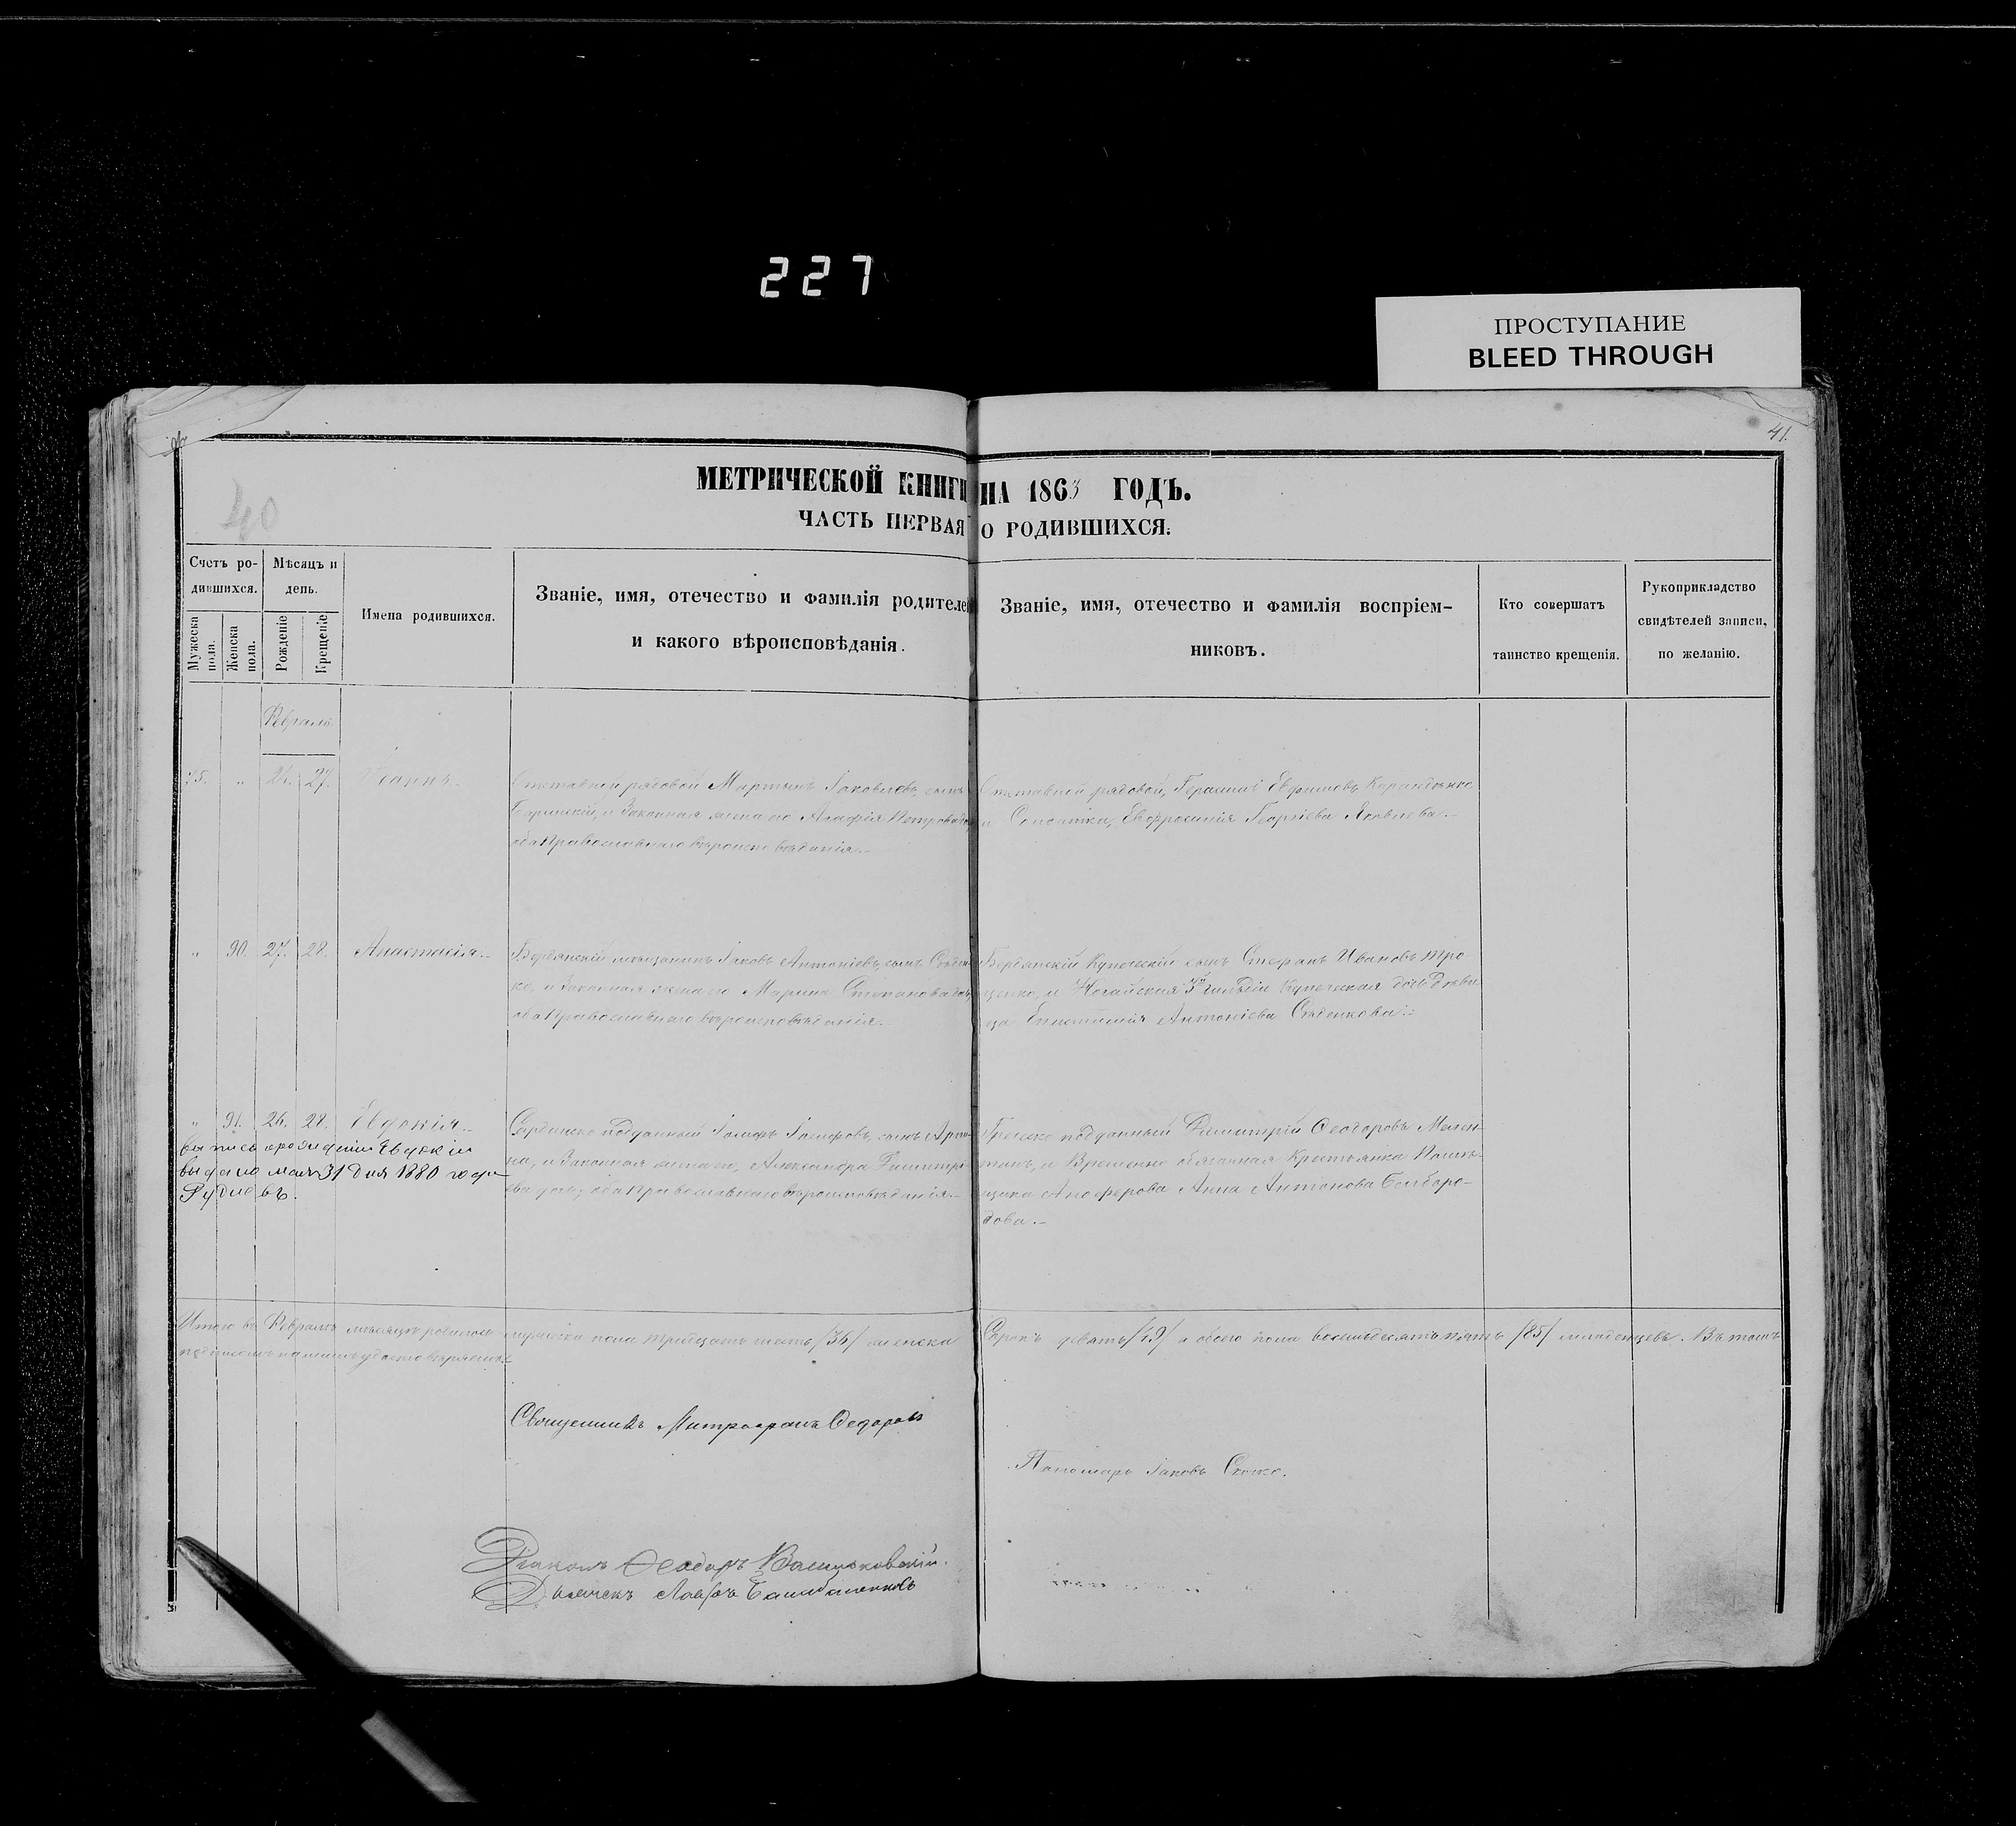 227
ПРОСТУПАНИЕ
BLEED THROUGH
41.
40
МЕТРИЧЕСКОЙ КНИГИ НА 1863 ГОДЪ.
ЧАСТЬ ПЕРВАЯ О РОДИВШИХСЯ.
Счетъ ро-
дившихся.
Мужеска
пола.
Женска
пола.
Мѣсяцъ и
день.
Рожденіе
Крещеніе
Имена родившихся.
Званіе, имя, отечество и фамилія родителей
и какого вѣроисповѣданія.
Званіе, имя, отечество и фамилія воспріем-
никовъ.
Кто совершатъ
таинство крещенія.
Рукоприкладство
свидѣтелей записи,
по желанію.
Февраль
" 27.
Іоаннъ.
Отставной рядовой Мартынъ Іаковлевъ, сынъ
и Законная жена его Агафія Петрова
оба Православнаго вѣроисповѣданія.
Отставной рядовой, Герасимъ
и Солдатка, Евфросинія Георгіева Яковлева.
" 90. 27. 28. Анастасія.
Бердянскій мѣщанинъ Іаковъ Антоніевъ, сынъ
ко, и Законная жена его Марина Степанова
оба Православнаго вѣроисповѣданія.
Бердянскій Купеческій сынъ Стефанъ Ивановъ Тро
щенко, и Ногайская 3й гильдіи Купеческая дочь дѣви
ца Антоніева Сѣденкова
" 91. 26. 28. Евдокія
Сардинско подданный Іосифъ Іосифовъ, сынъ
на, и Законная жена его, Александра Димитрі
ева оба Православнаго вѣроисповѣданія.
Греческо подданный Димитрій Феодоровъ
и Временно обязанная Крестьянка Помѣ
щика Анна Антонова Бомборо-
дова.
выдано мая 31 дня 1880 года
Рудневъ.
Итого въ Февралѣ мѣсяцѣ родилось мужеска пола тридцать шесть /36/ женска
Сорокъ девять /49/ а обоего пола восемьдесятъ пять /85/ младенцевъ. Въ томъ
Священникъ Митрофанъ Федоровъ
Пономарь Іаковъ
Діаконъ Феодоръ Васильковскій.
Дьячекъ